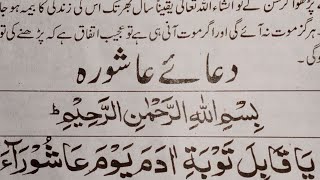 پڑھوا کر سن لے تو انشاء اللہ تعالیٰ یقیناً سال بھر تک اس کی زندگی کا بیمہ ہو جا
ہرگز موت نہ آئے گی اور اگر موت آنی ہی ہے تو عجیب اتفاق ہے کہ پڑھنے کی تو
گی۔
دعائے عاشورہ
بِسْمِ اللهِ الرَّحْمٰنِ الرَّحِيْمِ ط
يَا قَابِلَ تَوْبَةِ اٰدَمَ يَوْمَ عَاشُوْرَآءَ